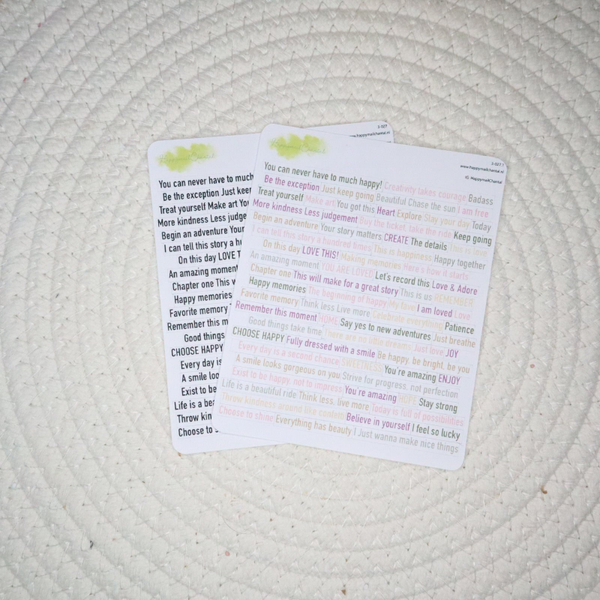 You can never have to much
Be the exception Just keep
Treat yourself Make art You
More kindness Less judge
Begin an adventure Your
I can tell this story a hu
On this day LOVE T
An amazing moment
Chapter one This w
Happy memories
Favorite memory
Remember this mo
Good things
CHOOSE HAPPY
Every day is
A smile loo
Exist to be
Life is a be
Throw kin
Choose to
You can never have to much happy! Creativity takes courage Badass
Be the exception Just keep going Beautiful Chase the sun I am free
Treat yourself Make art You got this Heart Explore Stay your day Today
More kindness Less judgement Buy the ticket take the ride Keep going
Begin an adventure Your story matters CREATE The details
I can tell this story a hundred times This is happiness Happy together
On this day LOVE THIS! Making memories Here's how it starts
An amazing moment YOU ARE LOVED Let's record this Love & Adore
Chapter one This will make for a great story This is us REMEMBER
Happy memories The beginning of happy I am loved Love
Favorite memory Think less Live more Patience
Remember this moment HOME Say yes to new adventures Just breathe
Good things take time Just love JOY
CHOOSE HAPPY Fully dressed with a smile Be happy, be bright, be you
Every day is a second chance You're amazing ENJOY
A smile looks gorgeous on you Strive for progress, not perfection
Exist to be happy, not to impress You're amazing Stay strong
Life is a beautiful ride Think less, live more Today is full of possibilities
Throw kindness around like confetti Believe in yourself I feel so lucky
Choose to shine Everything has beauty I Just wanna make nice things